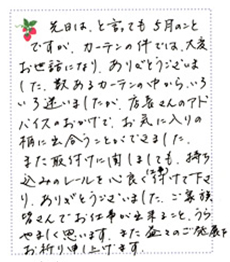 先日は、と言っても5月のこと
ですが、カーテンの件では、大変
お世話になり、ありがとうございま
した。数あるカーテンの中から、いろ
いろ迷いましたが、店長さんのアド
バイスのおかげで、お気に入りの
柄に出会うことができました。
また取付けに関しましても、持ち
込みのレールを心良く付けて下さ
り、ありがとうございました。ご家族
皆さんでお仕事が出来ること、うら
やましく思います。また益々のご発展を
お祈り申し上げます。